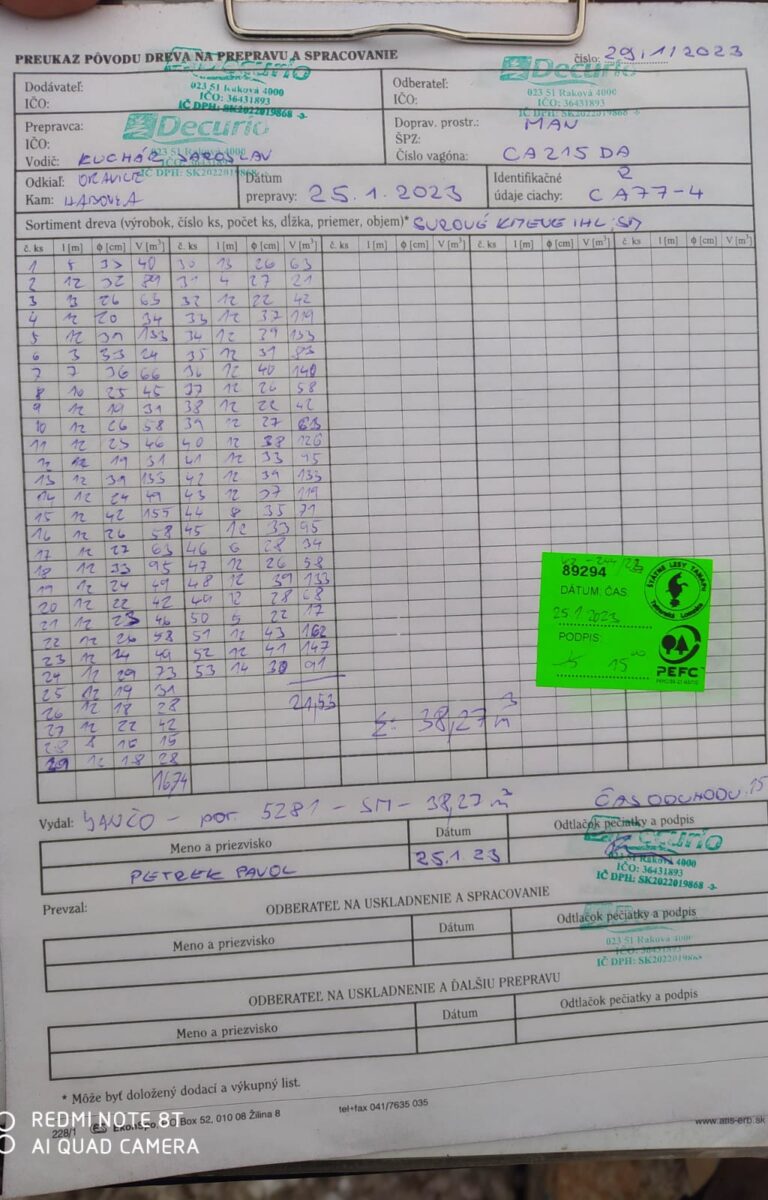 PREUKAZ PÔVODU DREVA NA PREPRAVU A SPRACOVANIE
číslo: 29/1/2023
Dodávateľ:
IČO:
Decurio
023 51 Raková 4000
IČO: 36431893
IČ DPH: SK2022019868
Odberateľ:
IČO:
Decurio
023 51 Raková 4000
IČO: 36431893
IČ DPH: SK2022019868
Prepravca:
IČO:
Vodič: KUCHÁR JAROSLAV
Decurio
023 51 Raková 4000
IČ DPH: SK2022019868
Doprav. prostr.: MAN
ŠPZ:
Číslo vagóna: CA215DA
Odkiaľ: ORAVICE
Kam: HABOVKA
Dátum
prepravy: 25.1.2023
Identifikačné 2
údaje ciachy: CA77-4
Sortiment dreva (výrobok, číslo ks, počet ks, dĺžka, priemer, objem)* SUROVÉ KMENE IHL: SM
č. ks l [m] ϕ [cm] V [m³] č. ks l [m] ϕ [cm] V [m³] č. ks l [m] ϕ [cm] V [m³] č. ks l [m] ϕ [cm] V [m³] č. ks l [m] ϕ [cm] V [m³]
1 33 40 30 13 26 63
2 12 32 89 31 4 27 21
3 26 63 32 12 22 42
4 12 20 34 33 12 37 119
5 12 39 133 34 12 39 133
6 3 33 24 35 12 31 83
7 7 36 66 36 12 40 140
8 10 25 45 37 12 26 58
9 12 19 31 38 12 22 42
10 12 26 58 39 12 27 63
11 12 23 46 40 12 38 126
12 12 19 31 41 12 33 95
13 12 39 133 42 12 39 133
14 12 24 49 43 12 37 119
15 12 42 155 44 8 35 71
16 12 26 58 45 12 33 95
17 12 27 63 46 6 28 34
18 12 33 95 47 12 26 58
19 12 24 49 48 12 39 133
20 12 22 42 49 12 28 68
21 12 23 46 50 5 22 17
22 12 26 58 51 12 43 162
23 12 24 49 52 12 41 147
24 12 29 73 53 14 30 91
25 12 19 31
26 12 18 28 21,53
27 12 22 42
28 8 16 15
29 12 18 28
1674
Σ: 38,27 m³
89294
DÁTUM, ČAS
25.1.2023
PODPIS:
15 00
ŠTÁTNE LESY TANAPU
Tatranská Lomnica
PEFC
Vydal: JANČO - por. 5281 - SM - 38,27 m³
ČAS ODCHODU: 15
Meno a priezvisko
Dátum
Odtlačok pečiatky a podpis
PETREK PAVOL
25.1.23
023 51 Raková 4000
IČO: 36431893
IČ DPH: SK2022019868
Prevzal:
ODBERATEĽ NA USKLADNENIE A SPRACOVANIE
Meno a priezvisko
Dátum
Odtlačok pečiatky a podpis
023 51 Raková 4000
IČO: 36431893
IČ DPH: SK2022019868
ODBERATEĽ NA USKLADNENIE A ĎALŠIU PREPRAVU
Meno a priezvisko
Dátum
Odtlačok pečiatky a podpis
* Môže byť doložený dodací a výkupný list.
228/1
PO Box 52, 010 08 Žilina 8
tel+fax 041/7635 035
www.atis-erb.sk
REDMI NOTE 8T
AI QUAD CAMERA